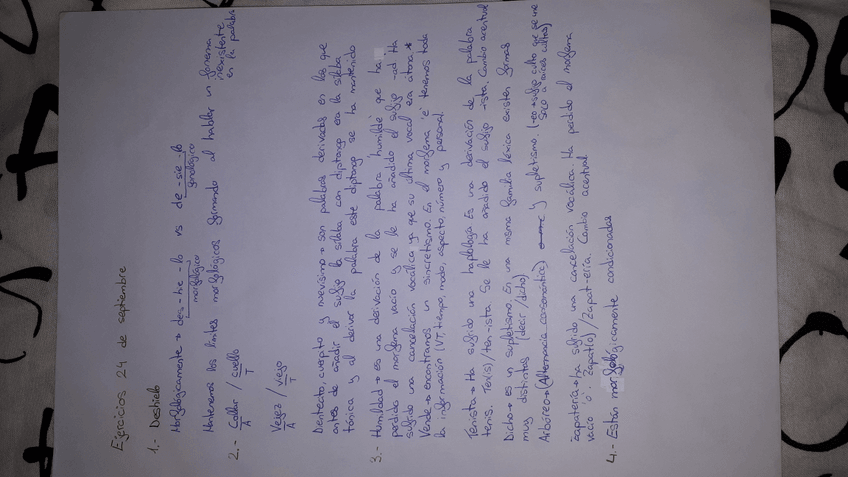 Ejercicios 24 de septiembre
1.- Deshielo
Morfológicamente → des-hie-lo vs de-sie-lo
morfológico fonológico
Mantenemos los límites morfológicos formando al hablar un fonema
inexistente
en la palabra
2.- Collar / cuello
A T
Vejez / viejo
A T
Dientecito, cuerpito y nuevísimo → son palabras derivadas en las que
antes de añadir el sufijo la sílaba con diptongo era la sílaba
tónica y al derivar la palabra este diptongo se ha mantenido
3.- Humildad → es una derivación de la palabra 'humilde' que ha
perdido el morfema vacío y se le ha añadido el sufijo -ad. Ha
sufrido una cancelación vocálica ya que su última vocal era átona.
Vende → encontramos un sincretismo. En el morfema 'e' tenemos toda
la información (VT, tiempo, modo, aspecto, número y persona)
Tenista → Ha sufrido una haplología. Es una derivación de la palabra
tenis. Ten(is)/ten-ista. Se le ha añadido el sufijo -ista. Cambio acentual
Dicho → es un supletismo. En una misma familia léxica existen formas
muy distintas (decir/dicho)
Arbóreo → (Alternancia consonántica) y supletismo. (-eo → sufijo culto que se une
solo a raíces cultas)
Zapatería → ha sufrido una cancelación vocálica. Ha perdido el morfema
vacío 'o'. Zapat(o)/zapat-ería. Cambio acentual
4.- Están morfológicamente condicionadas